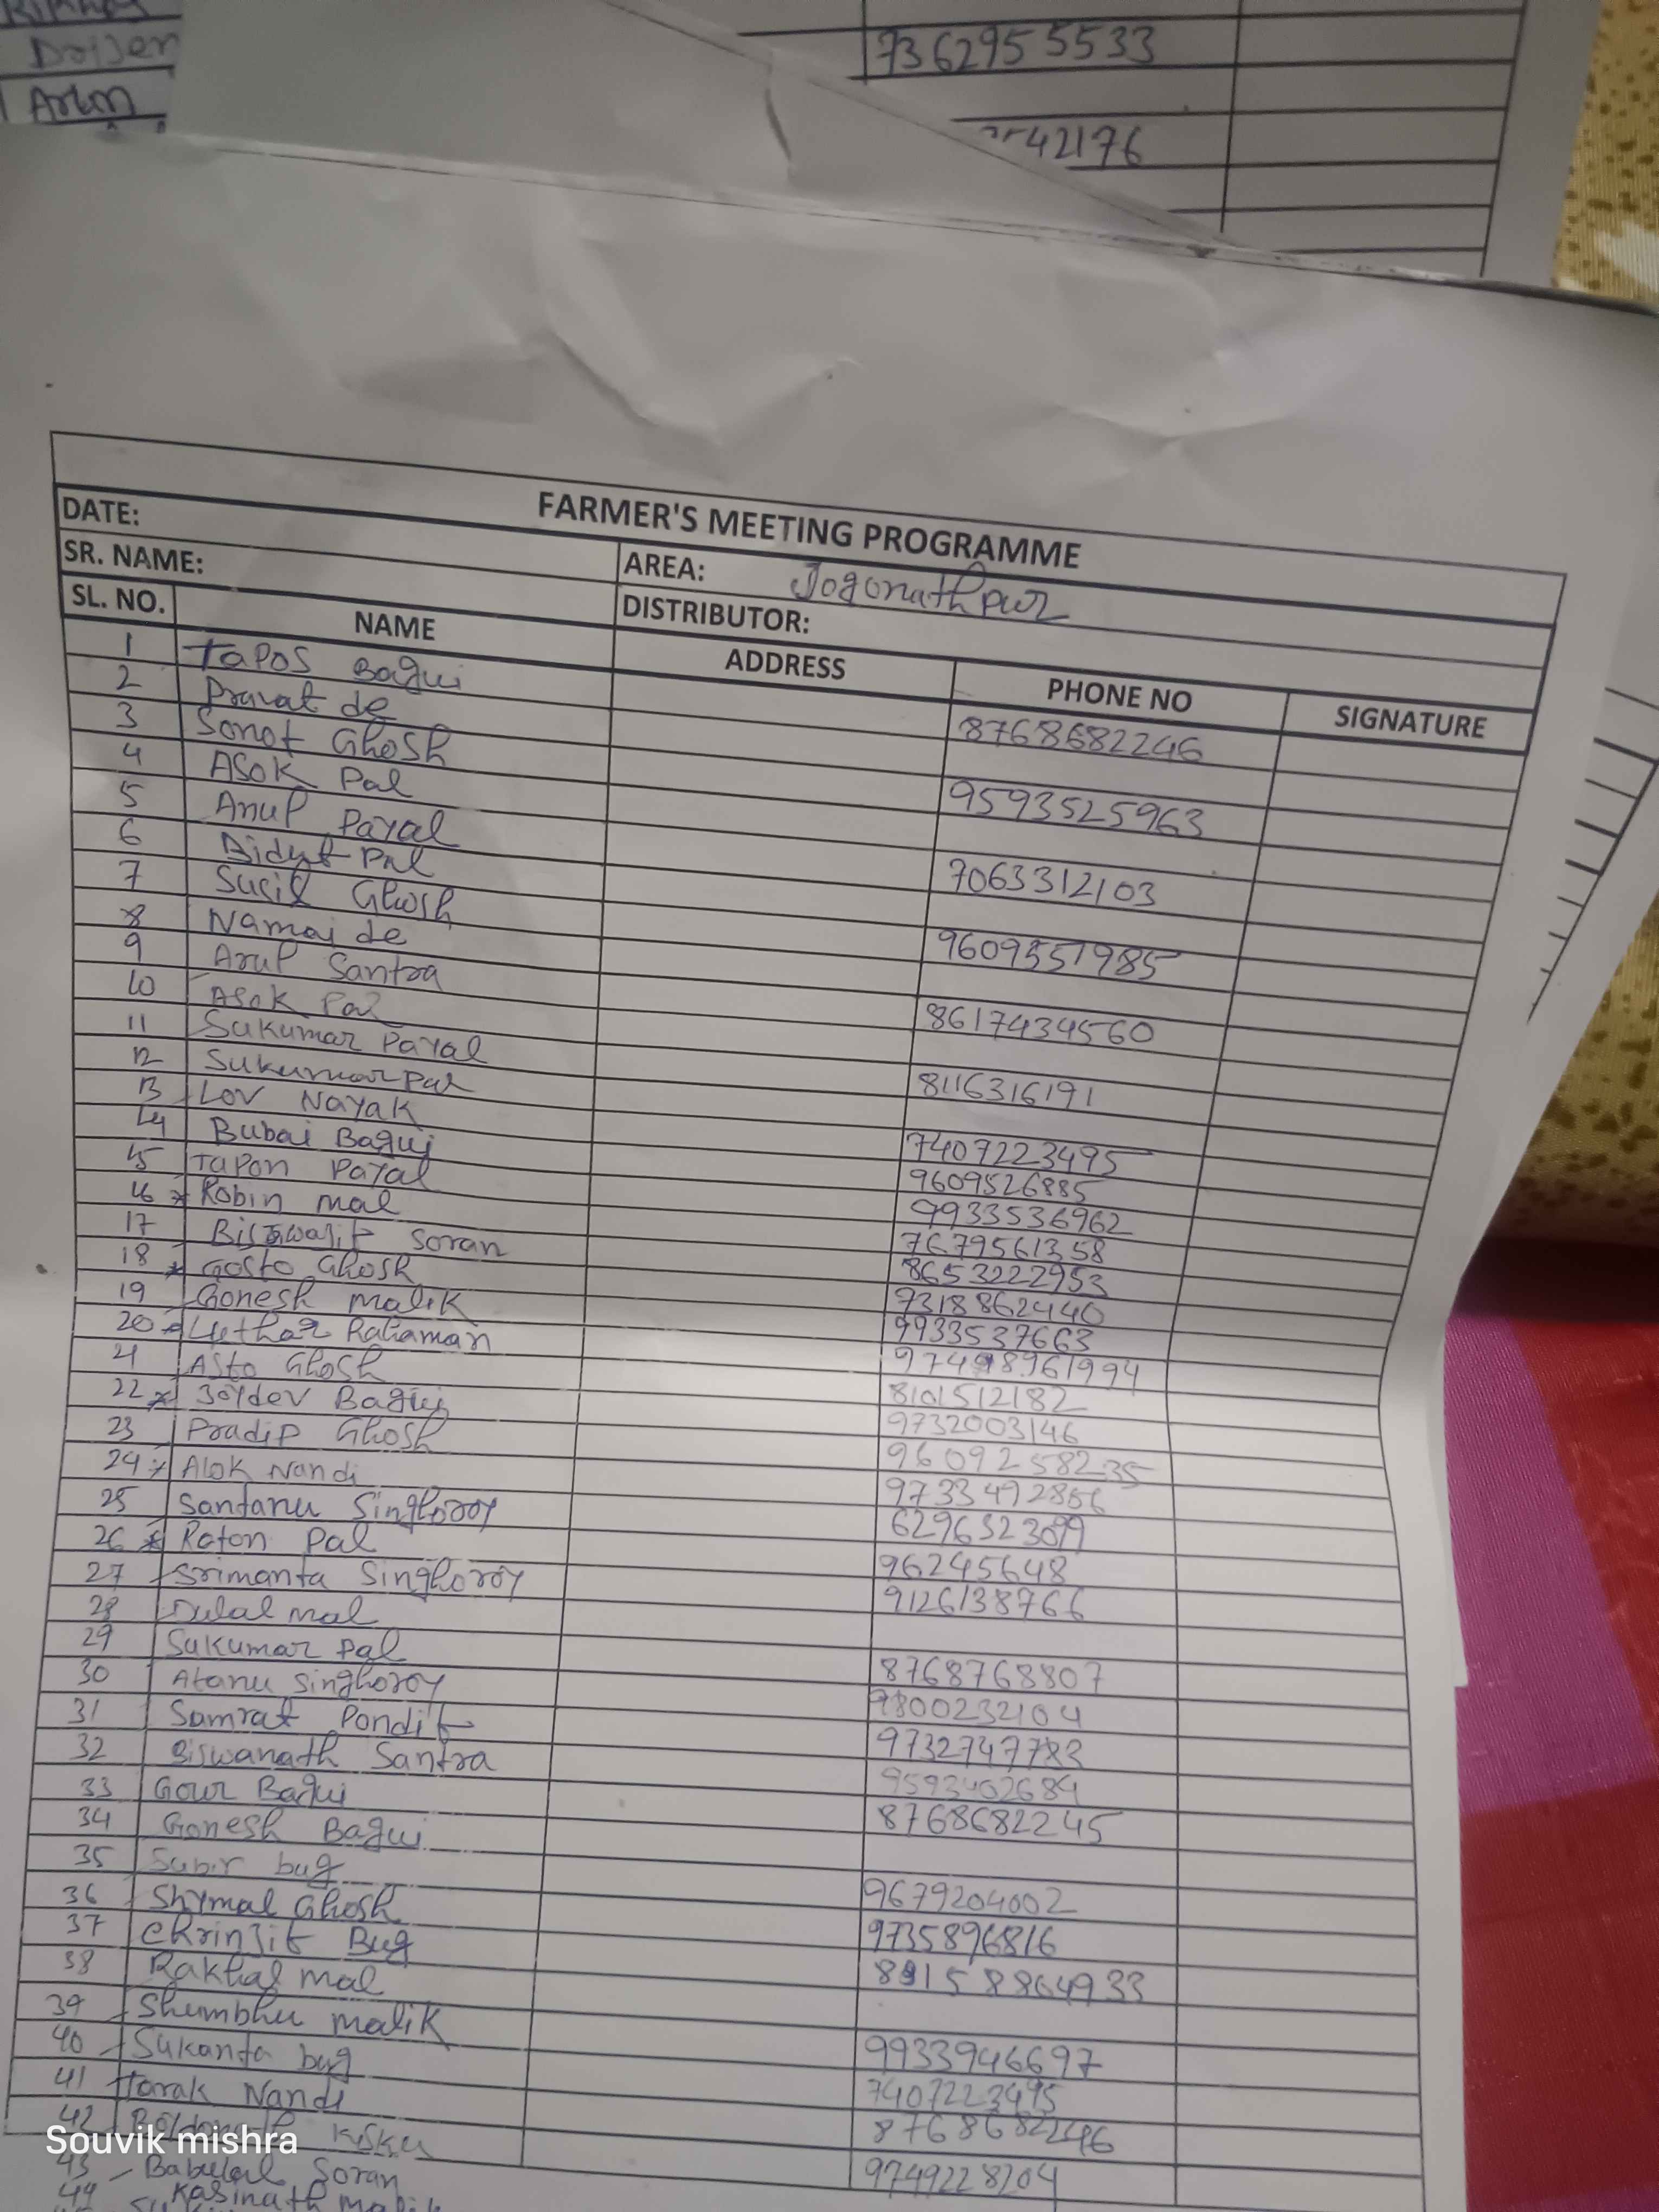 Arun
7362955533
42176
FARMER'S MEETING PROGRAMME
DATE: AREA: Jogonathpur
SR. NAME: DISTRIBUTOR:
SL. NO. NAME ADDRESS PHONE NO SIGNATURE
1 Tapos Bagui 8768682246
2 Pravat de
3 Sonot Ghosh 9593525963
4 Asok Pal
5 Anup Payal 7063312103
6 Bidyut Pal
7 Susil Ghosh 9609351985
8 Namai de
9 Arup Santra 8617434560
10 Asok Pal
11 Sukumar Payal 8116316191
12 Sukumar pal
13 Lov Nayak 7407223495
14 Bubai Bagui 9609526885
15 Tapon Payal 9933536962
16 Robin mal 7679561358
17 Biswajit Soran 8653222953
18 Gosto Ghosh 7318862440
19 Gonesh malik 9933537663
20 Rahaman
21 Asto Ghosh 8101512182
22 Joydev Bagui 9732003146
23 Pradip Ghosh 9609258235
24 Alok Nandi 9733492856
25 Santanu Singhoroy 6296323099
26 Raton Pal 96245648
27 Srimanta Singhoroy 9126138766
28 Dulal mal
29 Sukumar pal 8768768807
30 Atanu Singhoroy 9800232104
31 Samrat Pondit 9732747783
32 Biswanath Santra 9593402684
33 Gour Bagui 8768682245
34 Gonesh Bagui
35 Subir bug 9679204002
36 Shymal Ghosh 9735896816
37 Chrinjit Bug
38 Rakhal mal
39 Shumbhu malik 9933946697
40 Sukanta bug 7407223495
41 Tarak Nandi 8768682246
42 Kisku 9749228204
Souvik mishra
43 Babulal Soran
44 Kasinath malik